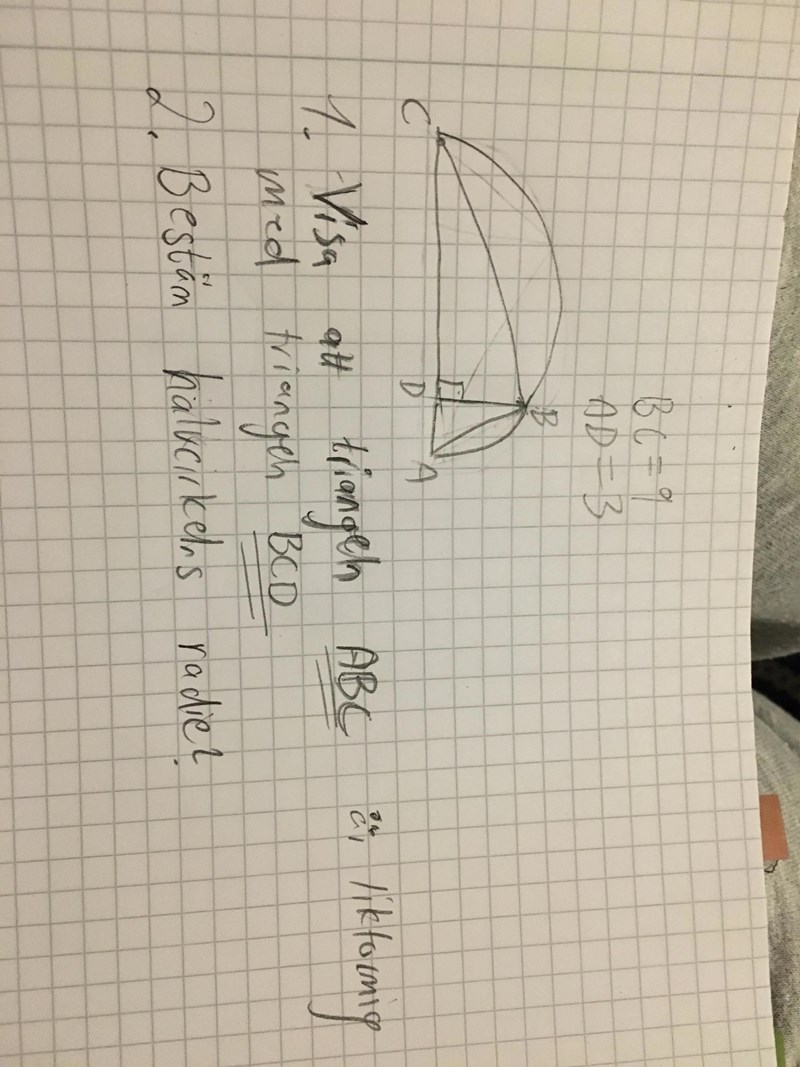 BC=9
AD=3
B
C
D
A
1. Visa att triangeln ABC är likformig
med triangeln BCD
2. Bestäm halvcirkelns radie?